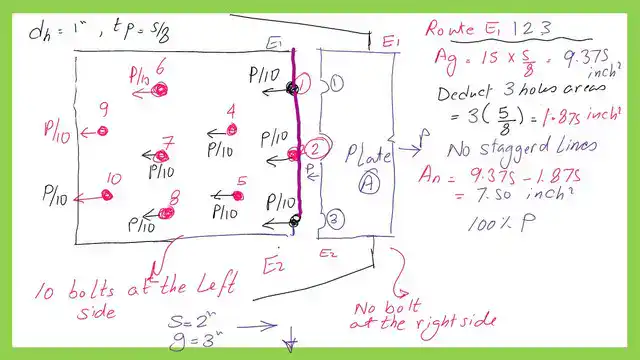 dh = 1", tp = 5/8
E1
E1
Route E1 1 2 3
Ag = 15 x 5/8 = 9.375 inch²
Deduct 3 holes areas
= 3(5/8) = 1.875 inch²
No staggerd lines
An = 9.375 - 1.875
= 7.50 inch²
100% P
6
P/10
P/10
1
1
9
4
P/10
P/10
P/10
7
P/10
2
Plate
A
P
P
10
P/10
5
P/10
8
P/10
P/10
3
E2
E2
10 bolts at the Left
side
No bolt
at the right side
S = 2"
g = 3"